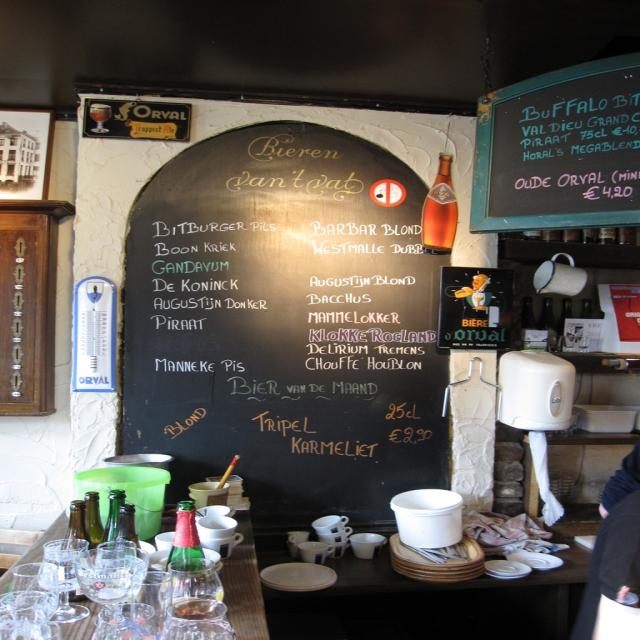 D'ORVAL
trappist Ale
Bieren
van't vat
BITBURGER PILS
BOON KRIEK
GANDAVUM
DE KONINCK
AUGUSTIJN DONKER
PIRAAT
MANNEKE PIS
BARBAR BLOND
WESTMALLE DUBBE
AUGUSTIJN BLOND
BACCHUS
MAMMELOKKER
KLOKKE ROELAND
DELIRIUM TREMENS
CHOUFFE HOUBLON
BIER VAN DE MAAND
BLOND
TRIPEL
KARMELIET
25cl
€2,90
ORVAL
BIÈRE
d'orval
BUFFALO BIT
VAL DIEU GRAND C
PIRAAT 75cl €10
HORAL'S MEGABLEND
OUDE ORVAL (MIN
€4,20